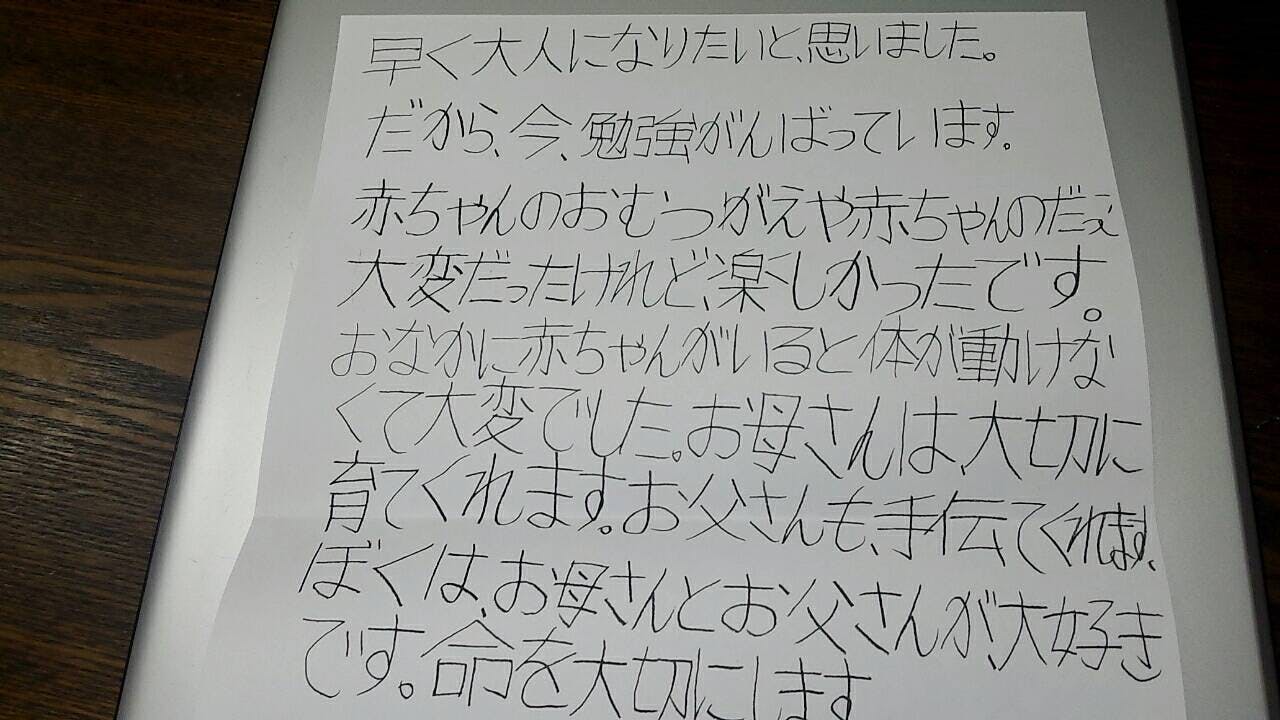 早く大人になりたいと、思いました。
だから、今、勉強がんばっています。
赤ちゃんのおむつがえや赤ちゃんのだえ
大変だったけれど、楽しかったです。
おなかに赤ちゃんがいると体が動けな
くて大変でした。お母さんは、大切に
育てくれます。お父さんも、手伝てくれます、
ぼくは、お母さんとお父さんが、大好き
です。命を大切にします